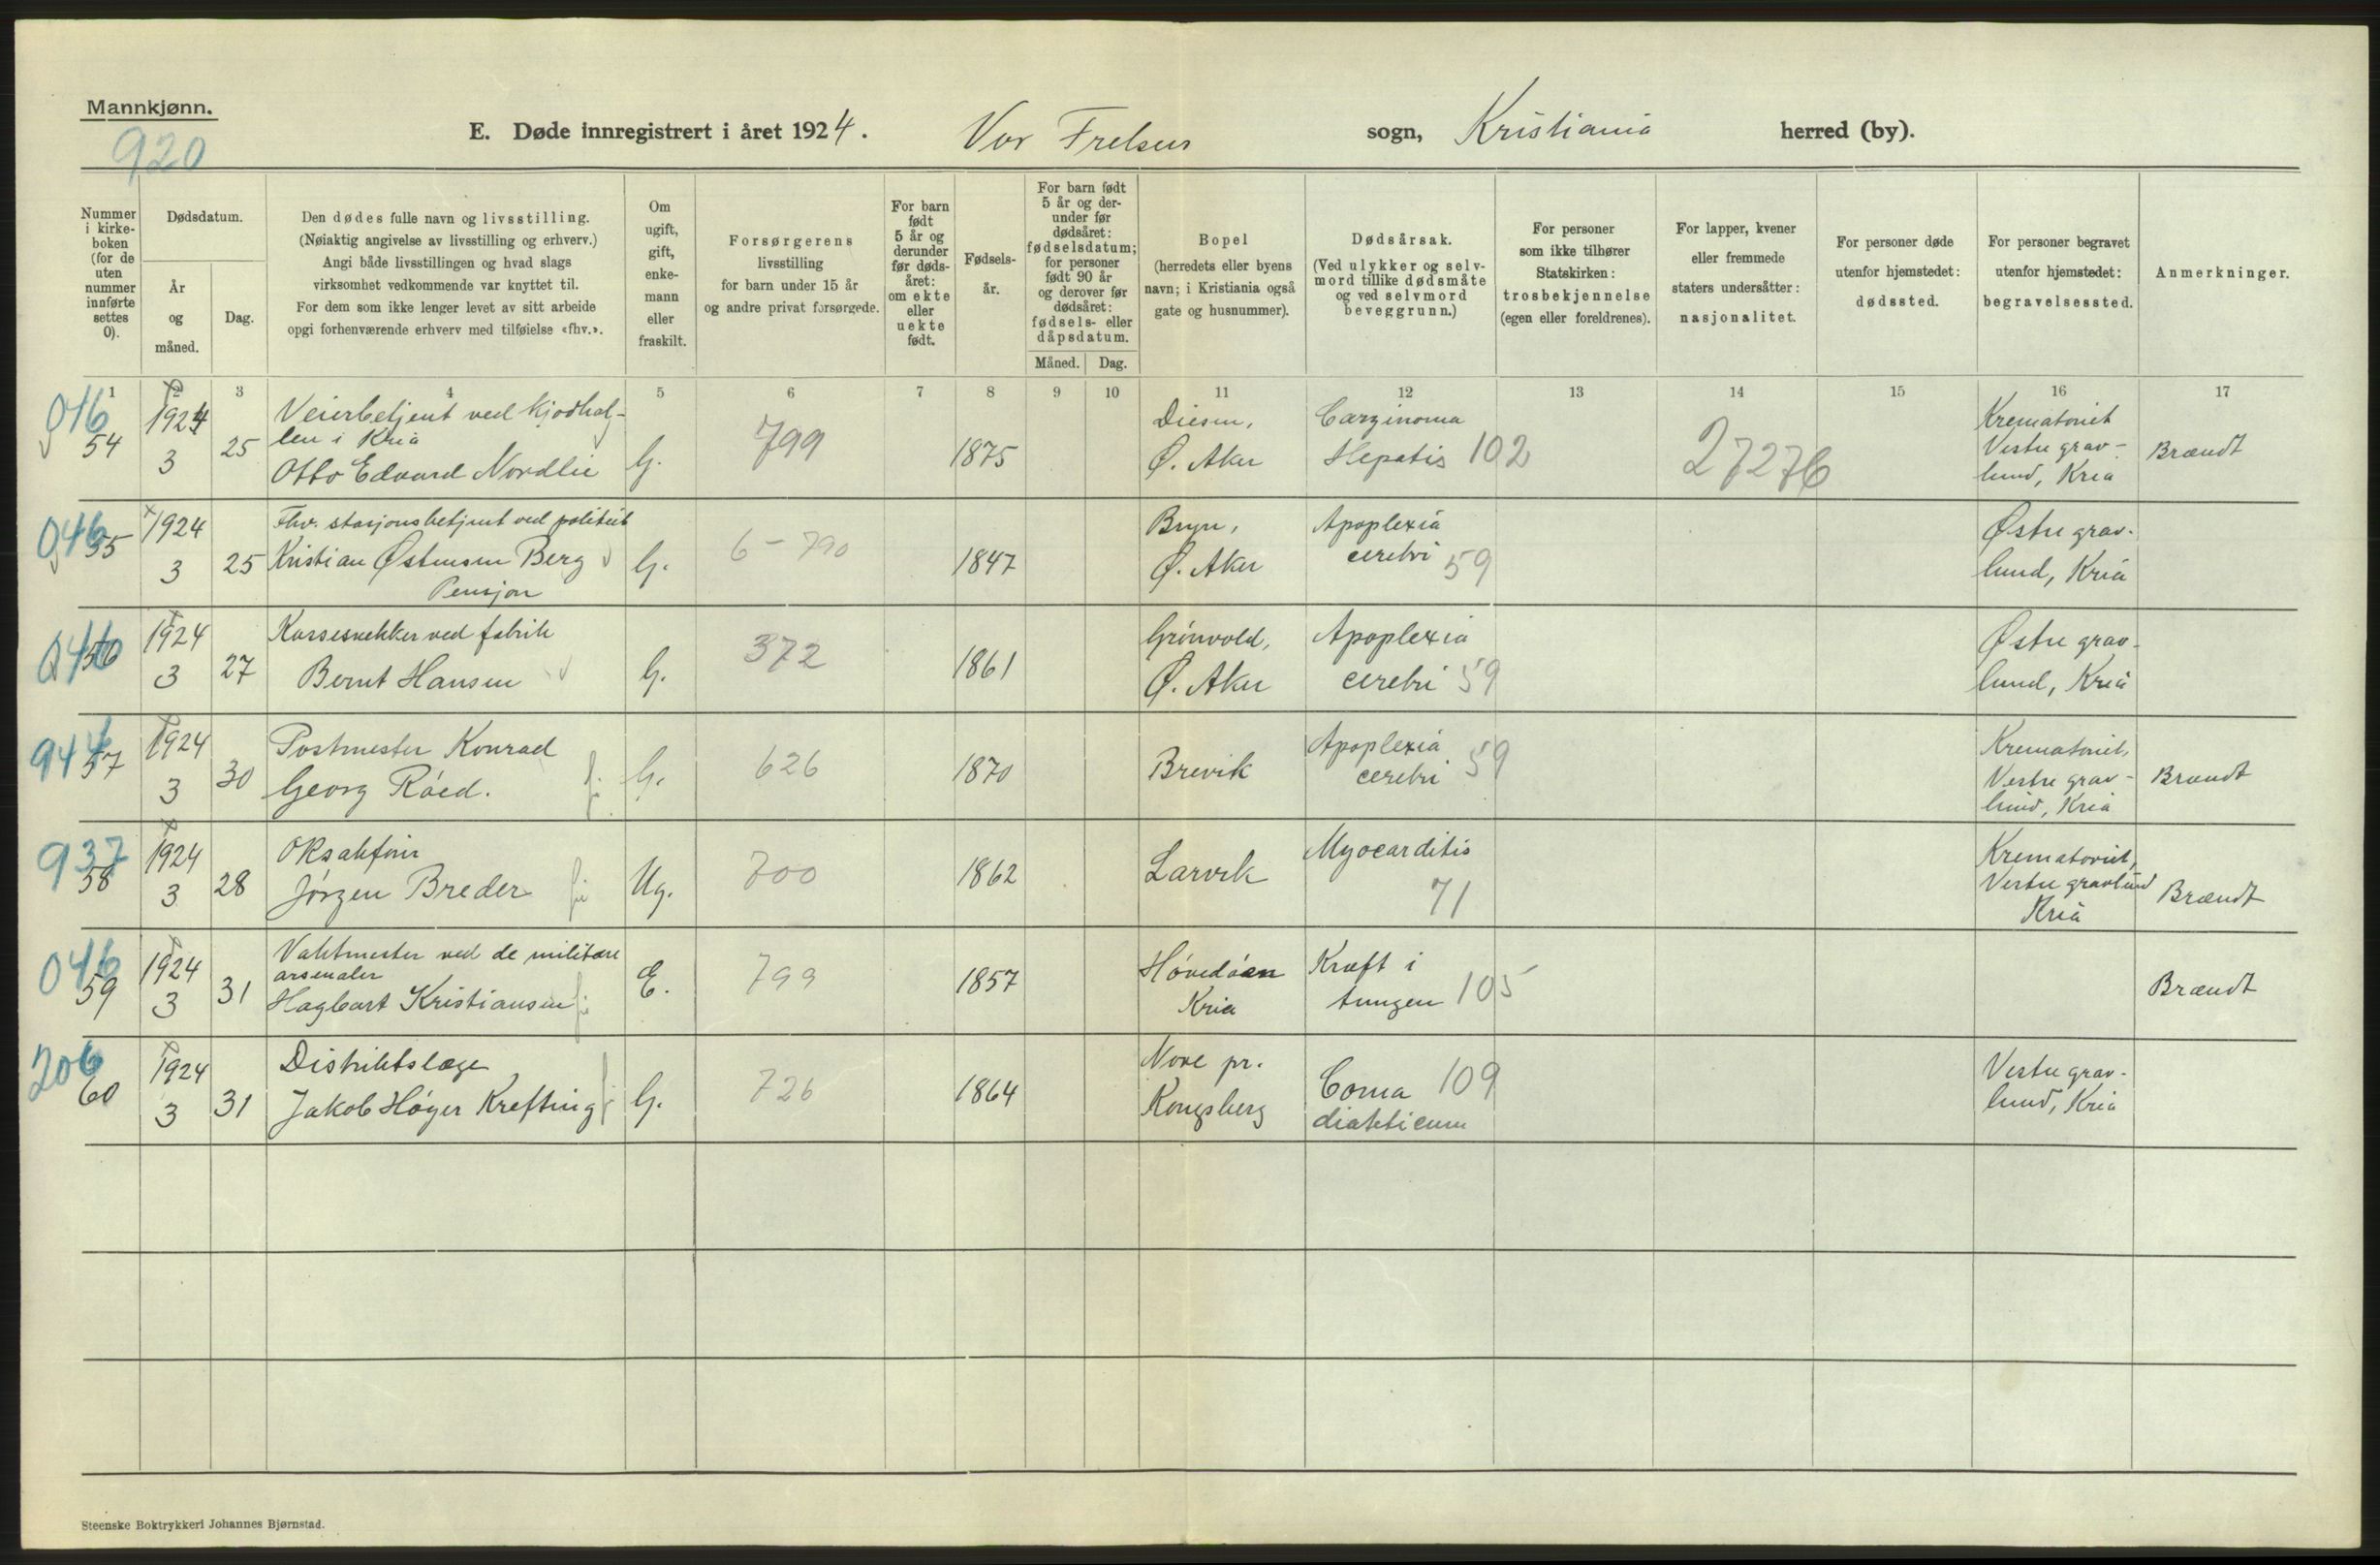 Mannkjønn.
920
E. Døde innregistrert i året 1924. Vor Frelsers sogn, Kristiania herred (by).
Nummer i kirke-boken (for de uten nummer innførte settes 0).
Dødsdatum.
År og måned.
Dag.
Den dødes fulle navn og livsstilling.
(Nøiaktig angivelse av livsstilling og erhverv.)
Angi både livsstillingen og hvad slags
virksomhet vedkommende var knyttet til.
For dem som ikke lenger levet av sitt arbeide
opgi forhenværende erhverv med tilføielse «fhv.».
Om ugift, gift, enke-mann eller fraskilt.
Forsørgerens
livsstilling
for barn under 15 år
og andre privat forsørgede.
For barn født 5 år og derunder før døds-året: om ekte eller uekte født.
Fødsels-år.
For barn født 5 år og der-under før dødsåret: fødselsdatum; for personer født 90 år og derover før dødsåret: fødsels- eller dåpsdatum.
Måned. Dag.
Bopel
(herredets eller byens
navn; i Kristiania også
gate og husnummer).
Dødsårsak.
(Ved ulykker og selv-
mord tillike dødsmåte
og ved selvmord
beveggrunn.)
For personer
som ikke tilhører
Statskirken:
trosbekjennelse
(egen eller foreldrenes).
For lapper, kvener
eller fremmede
staters undersåtter:
nasjonalitet.
For personer døde
utenfor hjemstedet:
dødssted.
For personer begravet
utenfor hjemstedet:
begravelsessted.
Anmerkninger.
1 2 3 4 5 6 7 8 9 10 11 12 13 14 15 16 17
016
54 1924 3 25
Veierbetjent ved Kjødhal-
len i Kria
Otto Edvard Nordlie
G. 799 1875
Diesen,
Ø. Aker
Carzinoma
Hepatis 102
27276
Krematoriet
Vestre grav-
lund, Kria
Brændt
046
55 1924 3 25
Fhv. stasjonsbetjent ved politiet
Kristian Østensen Berg
Pensjon
G. 6-790 1847
Bryn,
Ø. Aker
Apoplexia
cerebri 59
Østre grav-
lund, Kria
56 1924 3 27
Kassesnekker ved fabrik
Bernt Hansen
G. 372 1861
Grönvold,
Ø. Aker
Apoplexia
cerebri 59
Østre grav-
lund, Kria
57 1924 3 30
Postmester Konrad
Georg Röed.
G. 626 1870
Brevik
Apoplexia
cerebri 59
Krematoriet,
Vestre grav-
lund, Kria
Brændt
937
58 1924 3 28
O.R.sakfører
Jörgen Breder
Ug. 700 1862
Larvik
Myocarditis
71
Krematoriet,
Vestre gravlund
Kria
Brændt
046
59 1924 3 31
Vaktmester ved de militære
arsenaler
Hagbart Kristiansen
E. 799 1857
Hövedöen
Kria
Kræft i
tungen 105
Brændt
206
60 1924 3 31
Distriktslæge
Jakob Höyer Krefting
G. 726 1864
Nore pr.
Kongsberg
Coma 109
diabeticum
Vestre grav-
lund, Kria
Steenske Boktrykkeri Johannes Bjørnstad.